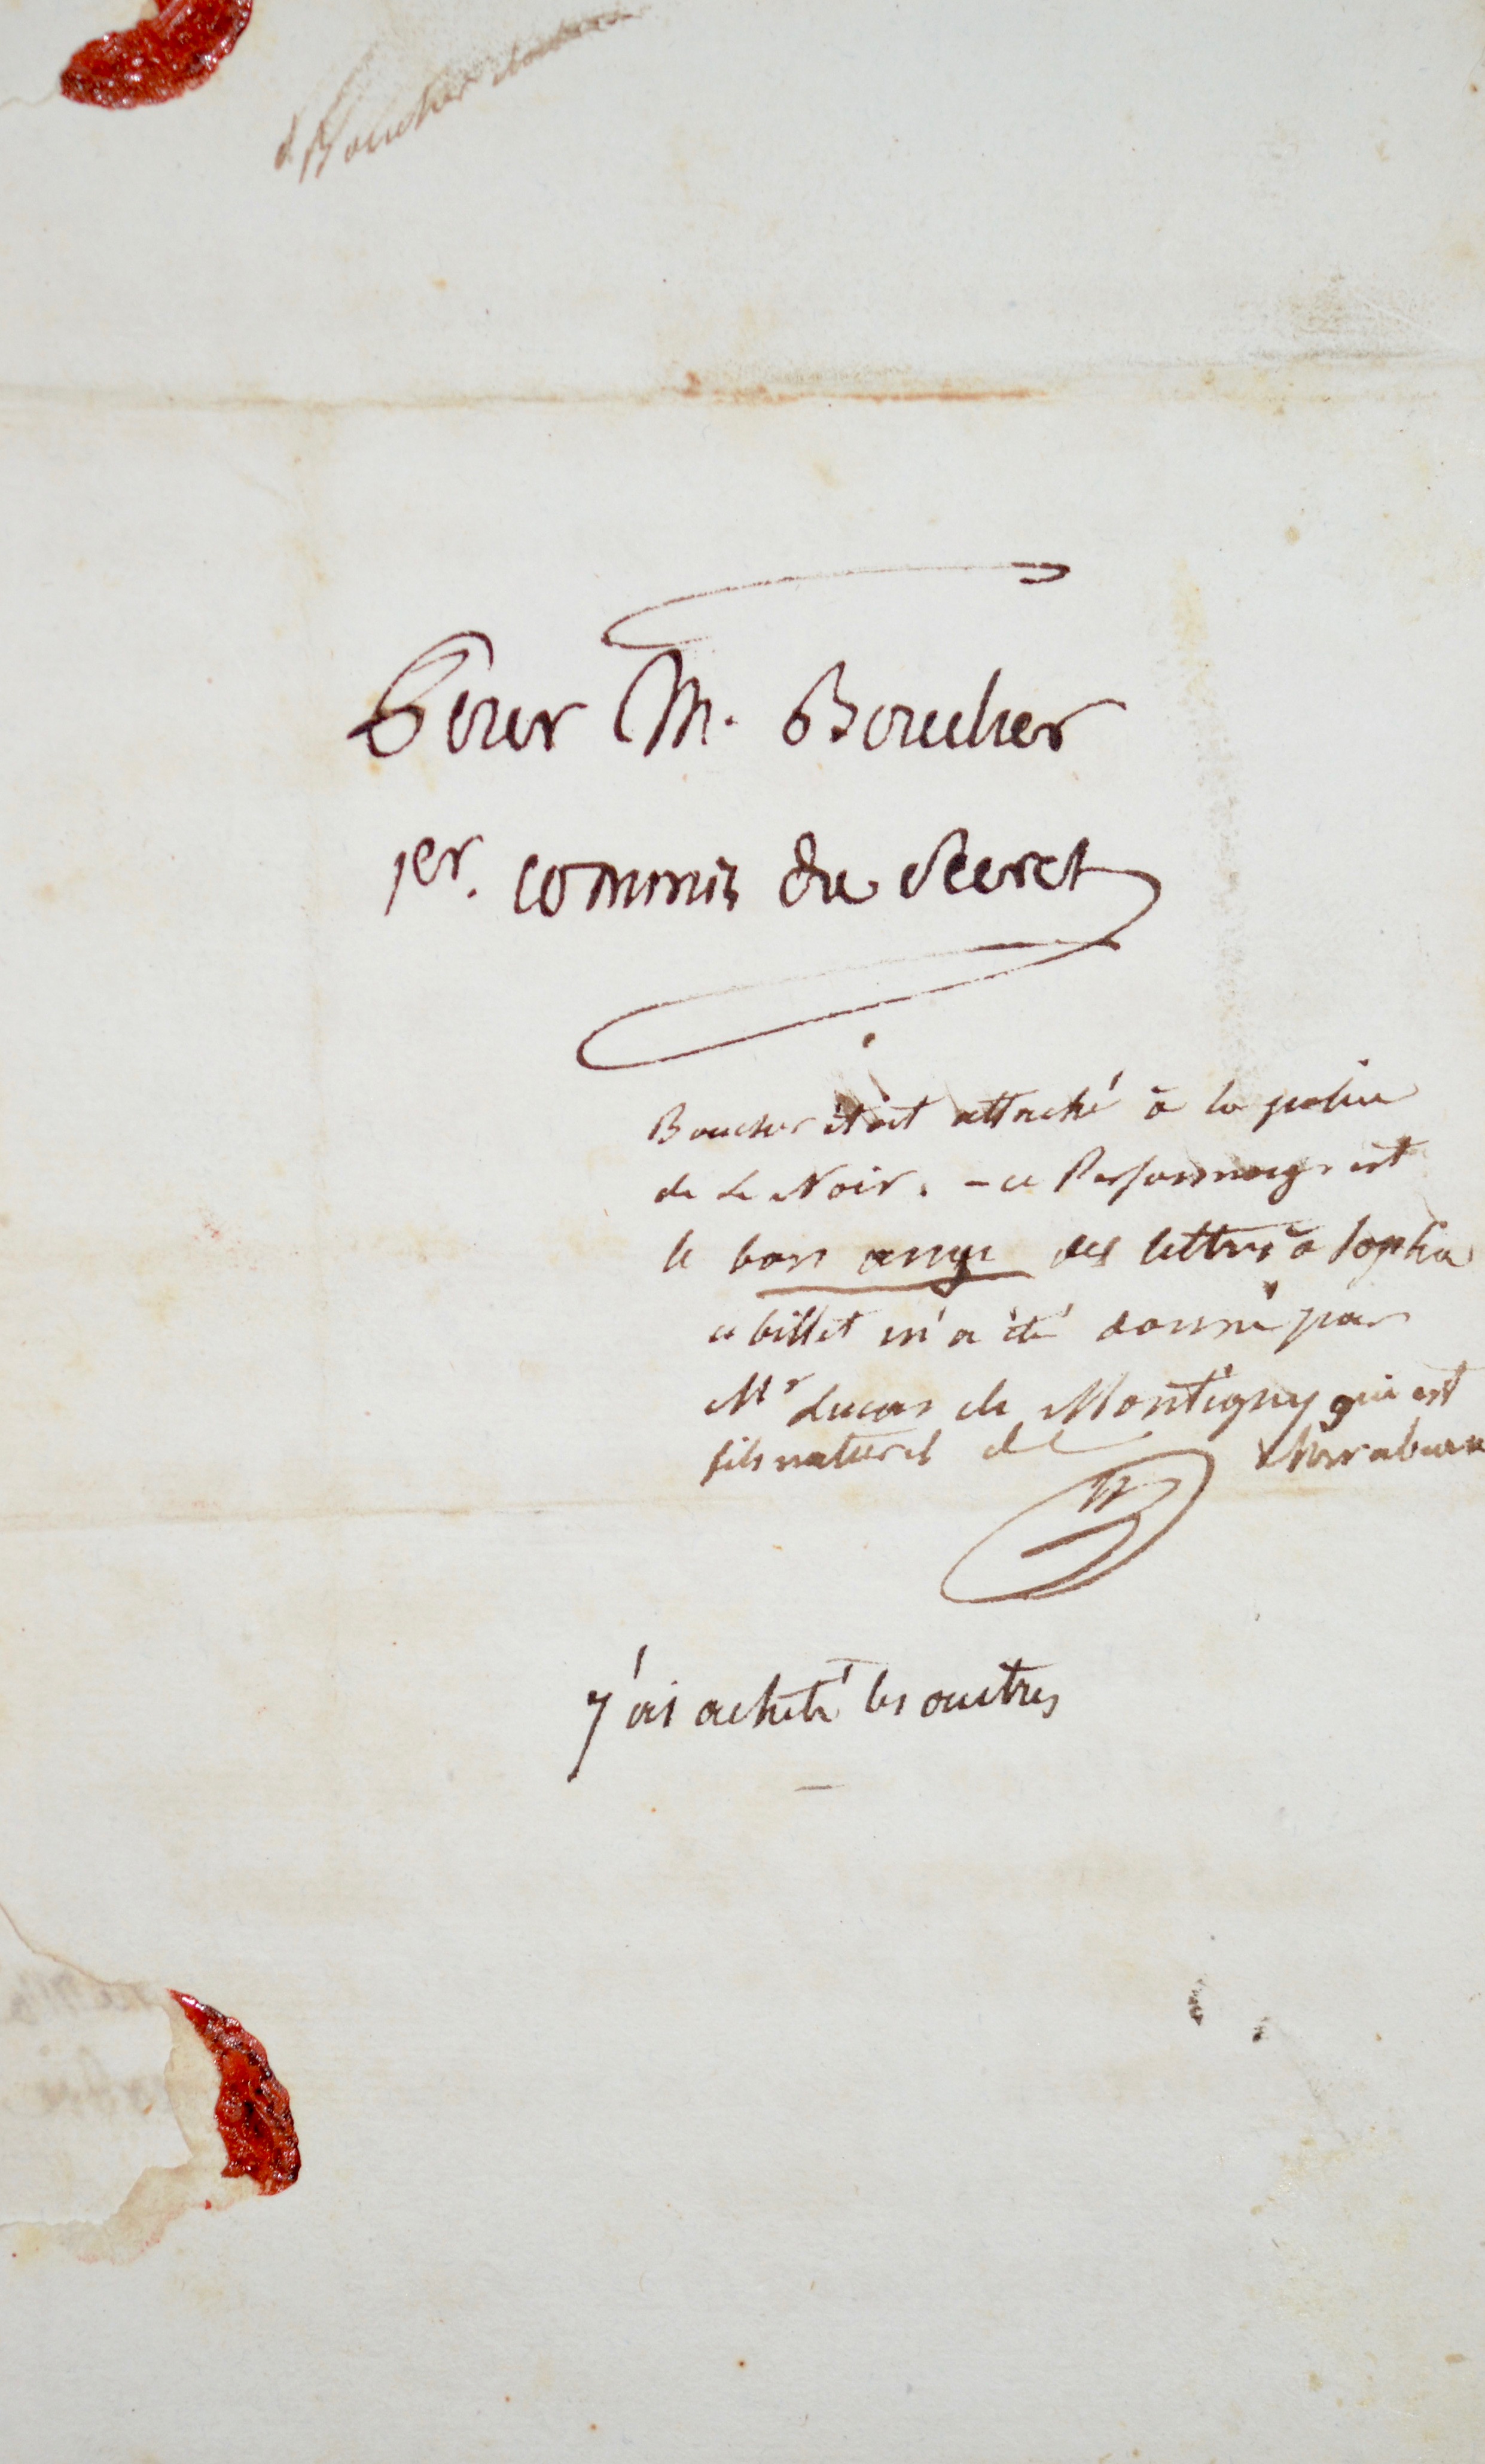 Boucher
Pour M. Boucher
1er. commis du Secret
Boucher était attaché à la police
de Le Noir. – ce Personnage est
le bon ange des lettres à Sophie
ce billet m'a été donné par
Mr Lucas de Montigny qui est
fils naturel de Mirabeau
j'ai acheté les autres